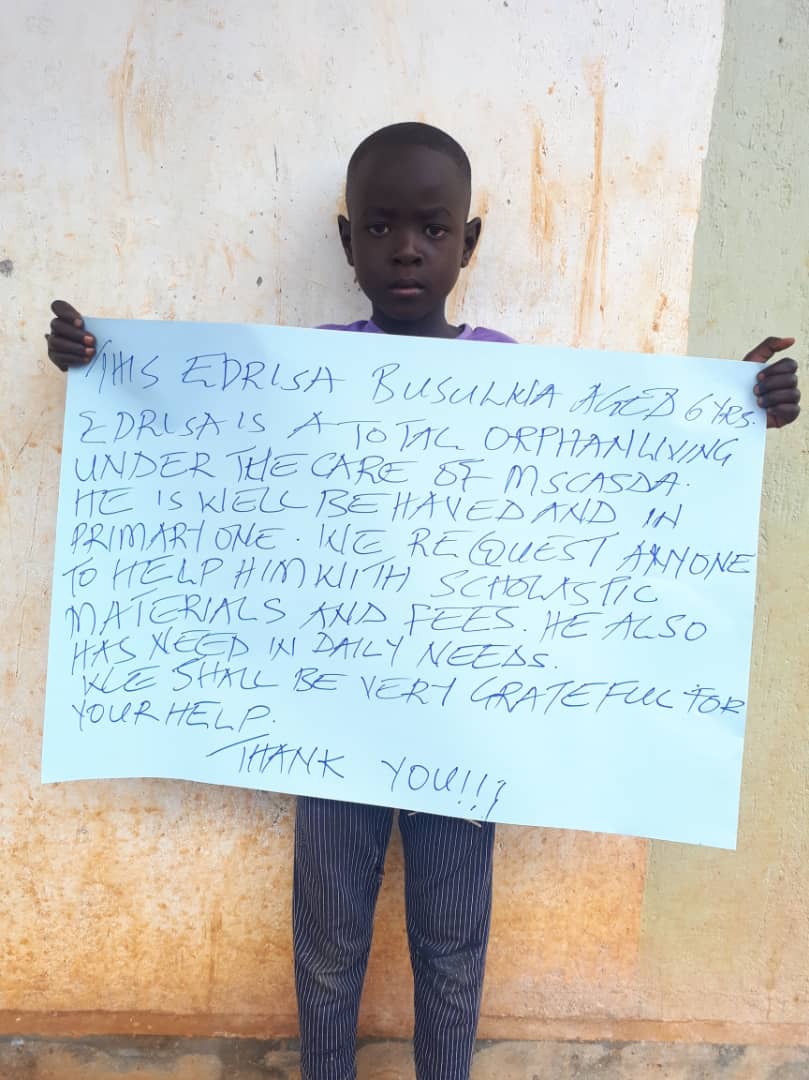 THIS EDRISA BUSULWA AGED 6 YRS.
EDRISA IS A TOTAL ORPHAN LIVING
UNDER THE CARE OF MSCASDA.
HE IS WELL BEHAVED AND IN
PRIMARY ONE. WE REQUEST ANYONE
TO HELP HIM WITH SCHOLASTIC
MATERIALS AND FEES. HE ALSO
HAS NEED IN DAILY NEEDS.
WE SHALL BE VERY GRATEFUL FOR
YOUR HELP.
THANK YOU!!!